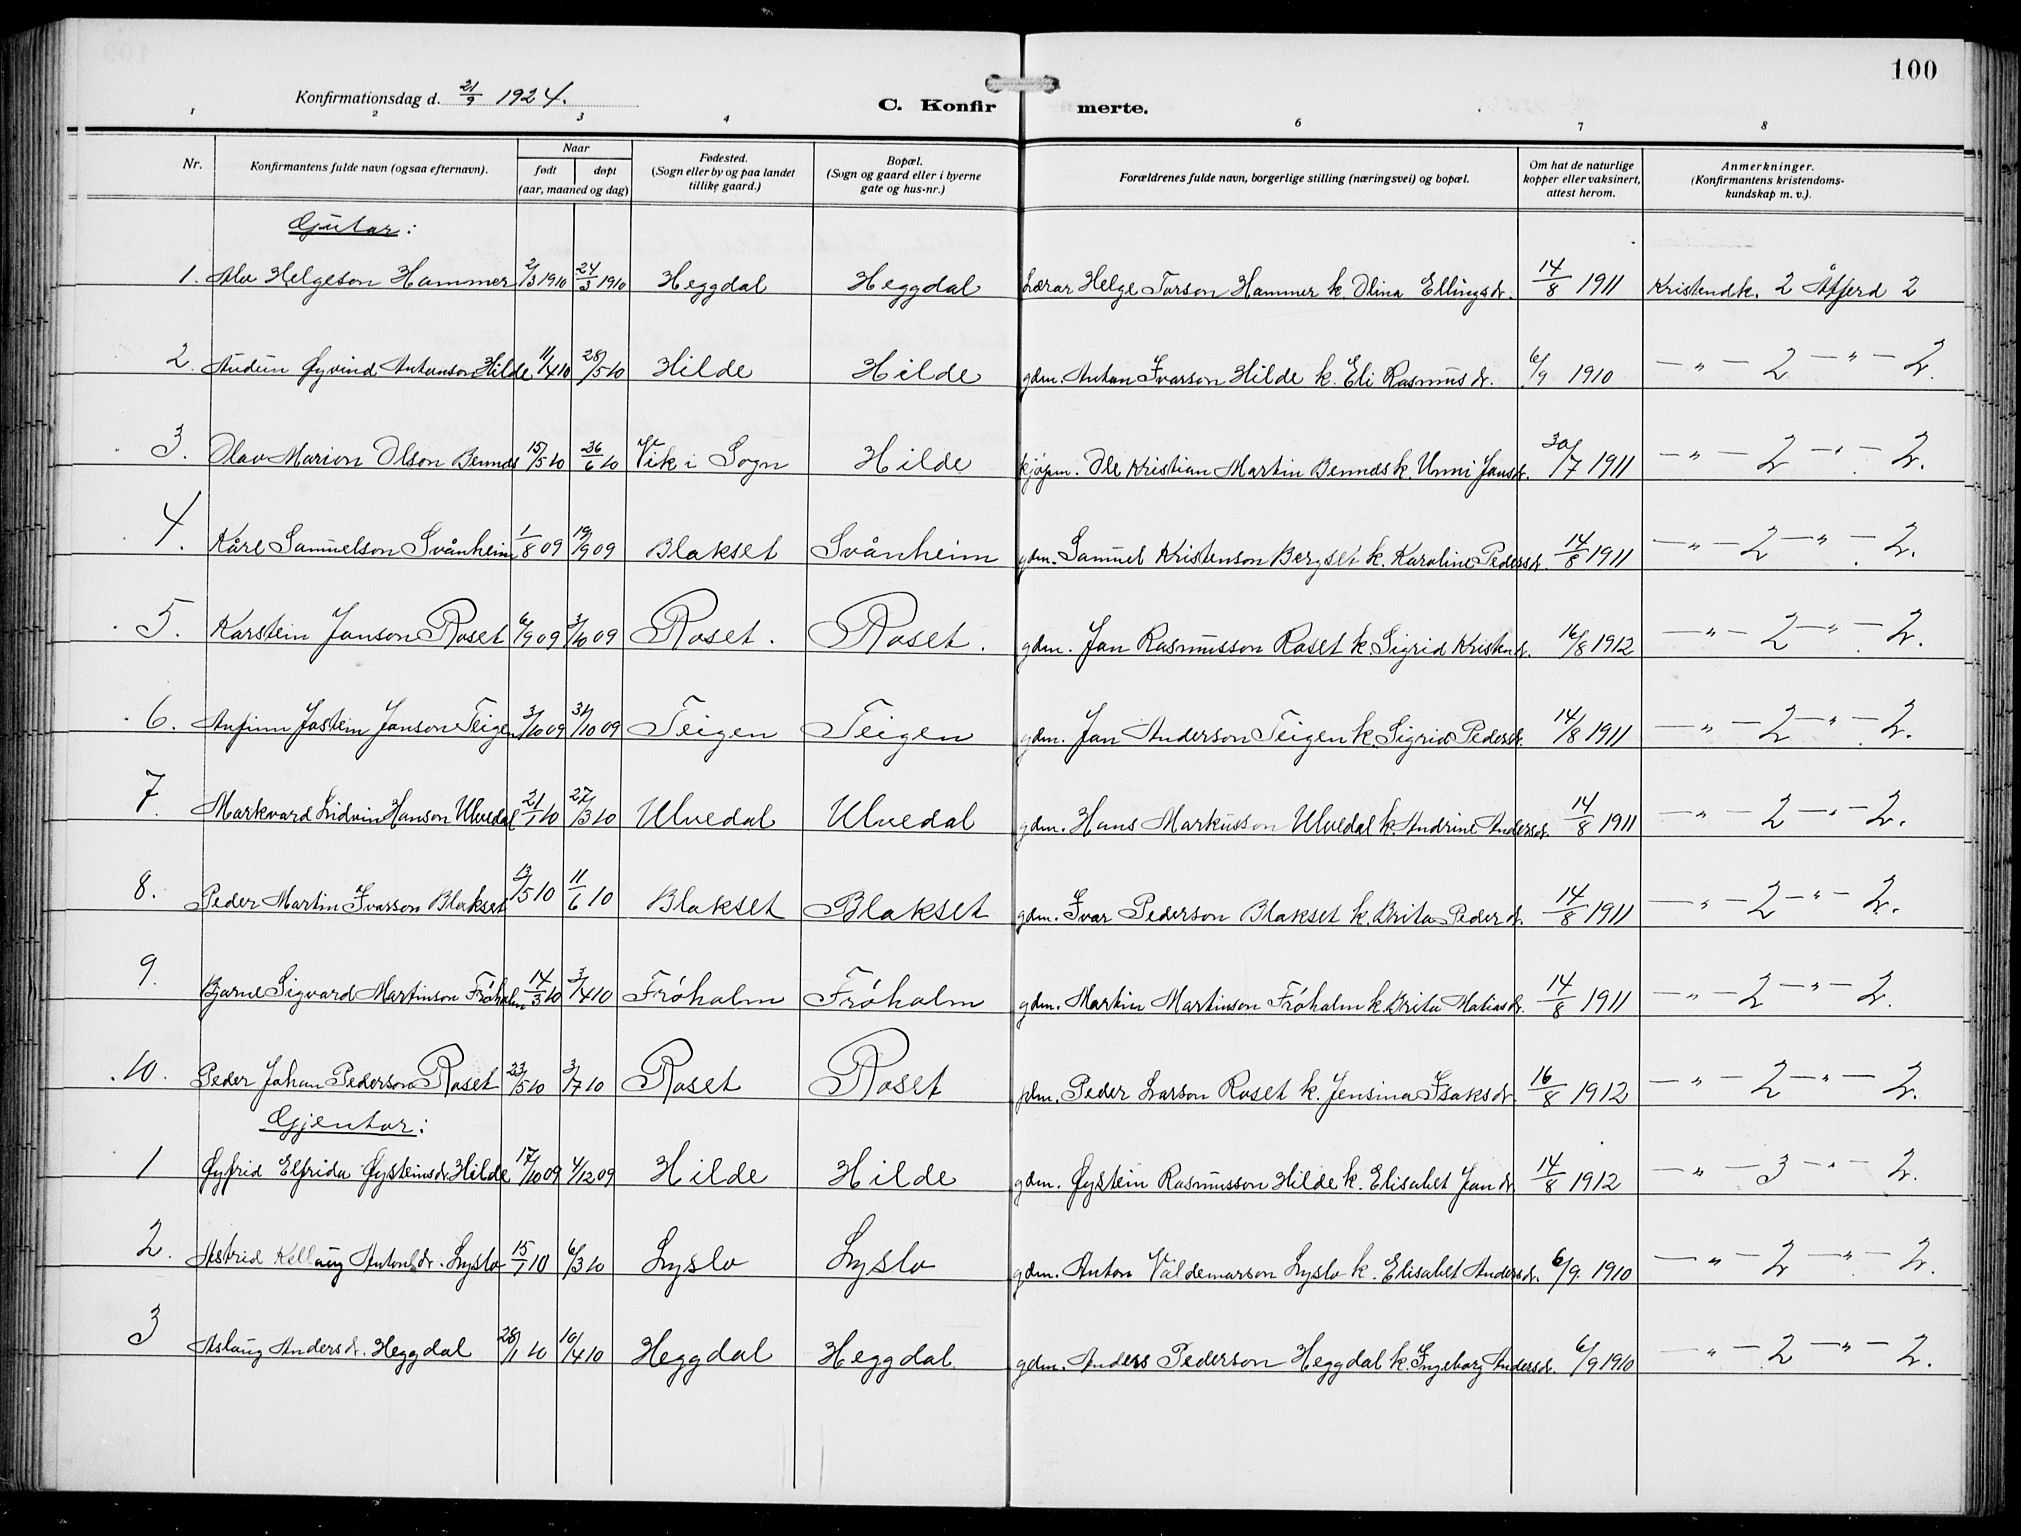 100
Konfirmationsdag d. 21/9 1924.
C. Konfirmerte.
1 2 3 4 6 7 8
Nr. Konfirmantens fulde navn (ogsaa efternavn). Naar født døpt (aar, maaned og dag) Fødested. (Sogn eller by og paa landet tillike gaard.) Bopæl. (Sogn og gaard eller i byerne gate og hus-nr.) Forældrenes fulde navn, borgerlige stilling (næringsvei) og bopæl. Om hat de naturlige kopper eller vaksinert, attest herom. Anmerkninger. (Konfirmantens kristendomskundskap m. v.).
Gjutar:
1. Alv Helgeson Hammer 2/3 1910 24/3 1910 Heggdal Heggdal Lærar Helge Torson Hammer k. Olina Ellingsdr. 14/8 1911 Kristendk. 2 Åtferd 2
2. Audun Øyvind Antonson Hilde 11/4 10 28/5 10 Hilde Hilde gdm. Anton Ivarson Hilde k. Eli Rasmusdr. 6/9 1910 — " — 2 — " — 2.
3. Olav Marion Olson Bennes 15/5 10 26/6 10 Vik i Sogn Hilde kjøpm. Ole Kristian Martin Bennes k. Unni Jansdr. 30/7 1911 — " — 2 — " — 2.
4. Kåre Samuelson Svånheim 1/8 09 19/9 09 Blakset Svånheim gdm. Samuel Kristenson Bergset k. Karoline Pedersdr. 14/8 1911 — " — 2 — " — 2.
5. Karstein Janson Roset 6/9 09 3/10 09 Roset. Roset. gdm. Jan Rasmusson Roset k. Sigrid Kristendr. 16/8 1912 — " — 2 — " — 2.
6. Anfinn Jostein Janson Teigen 3/10 09 31/10 09 Teigen Teigen gdm. Jan Anderson Teigen k. Sigrid Pedersdr. 14/8 1911 — " — 2 — " — 2.
7. Markvard Lidvin Hanson Ulvedal 21/1 10 27/3 10 Ulvedal Ulvedal gdm. Hans Markusson Ulvedal k. Andrine Andersdr. 14/8 1911 — " — 2 — " — 2.
8. Peder Martin Ivarson Blakset 13/5 10 11/6 10 Blakset Blakset gdm. Ivar Pederson Blakset k. Brita Pederdr. 14/8 1911 — " — 2 — " — 2.
9. Bjarne Sigvard Martinson Frøholm 14/3 10 3/4 10 Frøholm Frøholm gdm. Martin Martinson Frøholm k. Brita Matiasdr. 14/8 1911 — " — 2 — " — 2.
10. Peder Johan Pederson Roset 23/5 10 3/7 10 Roset Roset plm. Peder Larson Roset k. Jensina Isaksdr. 16/8 1912 — " — 2 — " — 2.
Gjentor:
1 Øyfrid Elfrida Øysteinsdr. Hilde 17/10 09 4/12 09 Hilde Hilde gdm. Øystein Rasmusson Hilde k. Elisabet Jandr. 14/8 1912 — " — 3 — " — 2.
2. Astrid Kellaug Antondr. Lyslo 15/1 10 6/3 10 Lyslo Lyslo gdm. Anton Valdemarson Lyslo k. Elisabet Andersdr. 6/9. 1910 — " — 2 — " — 2.
3 Aslaug Andersdr. Heggdal 28/1 10 10/4 10 Heggdal Heggdal gdm. Anders Pederson Heggdal k. Ingeborg Andersdr. 6/9 1910 — " — 2 — " — 2.